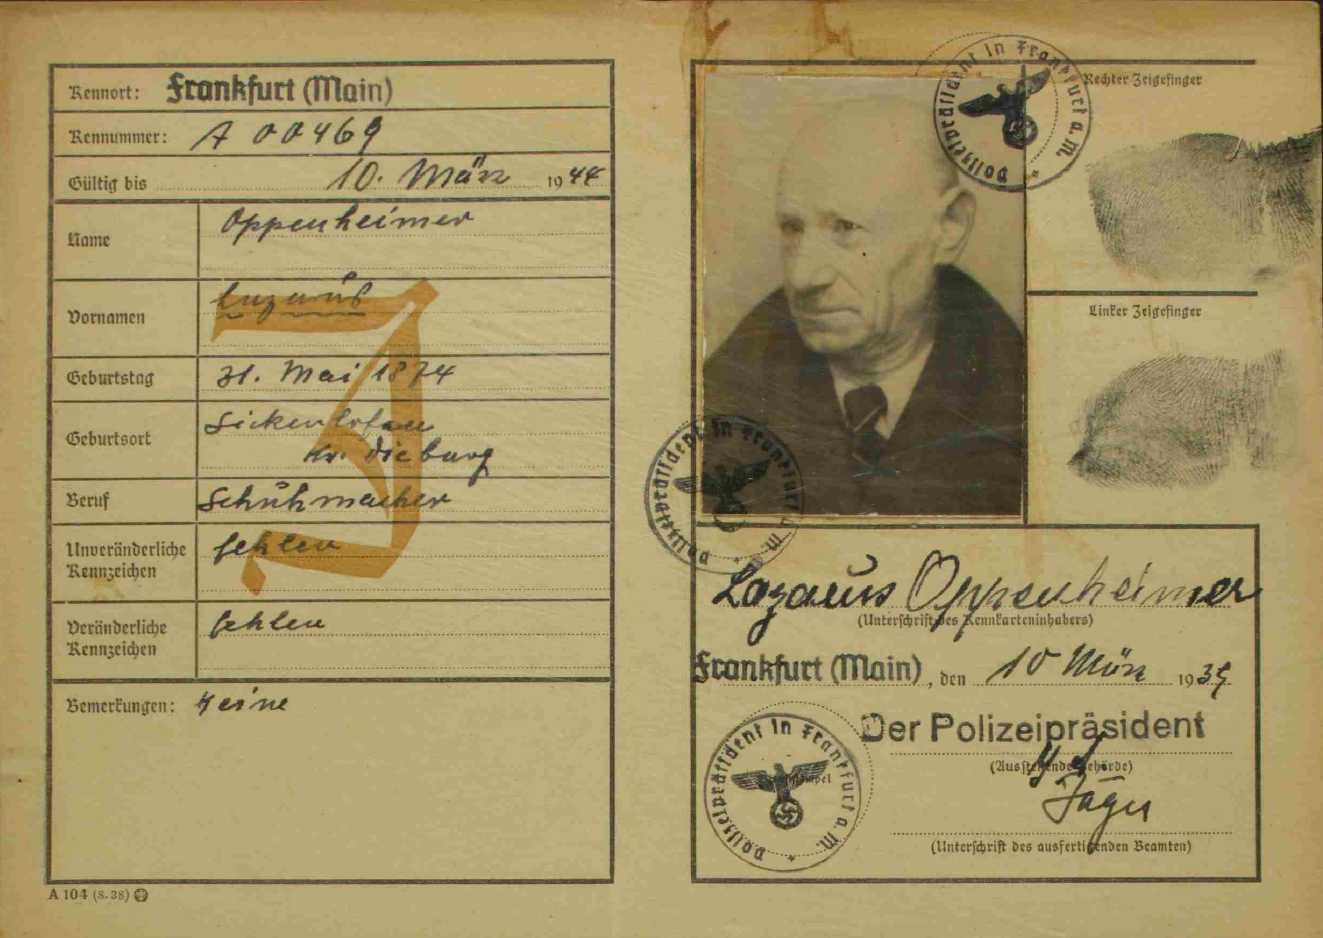 Kennort: Frankfurt (Main)
Kennummer: A 00469
Gültig bis 10. März 1944
Name Oppenheimer
Vornamen Lazarus
J
Geburtstag 31. Mai 1874
Geburtsort Sickenhofen
Kr. Dieburg
Beruf Schuhmacher
Unveränderliche Kennzeichen fehlen
Veränderliche Kennzeichen fehlen
Bemerkungen: Keine
A 104 (8. 38)
Polizeipräsident in Frankfurt a. M.
Rechter Zeigefinger
Linker Zeigefinger
Polizeipräsident in Frankfurt a. M.
Lazarus Oppenheimer
(Unterschrift des Kennkarteninhabers)
Frankfurt (Main), den 10 März 1939
Der Polizeipräsident
(Ausstellende Behörde)
Polizeipräsident in Frankfurt a. M.
Jäger
(Unterschrift des ausfertigenden Beamten)